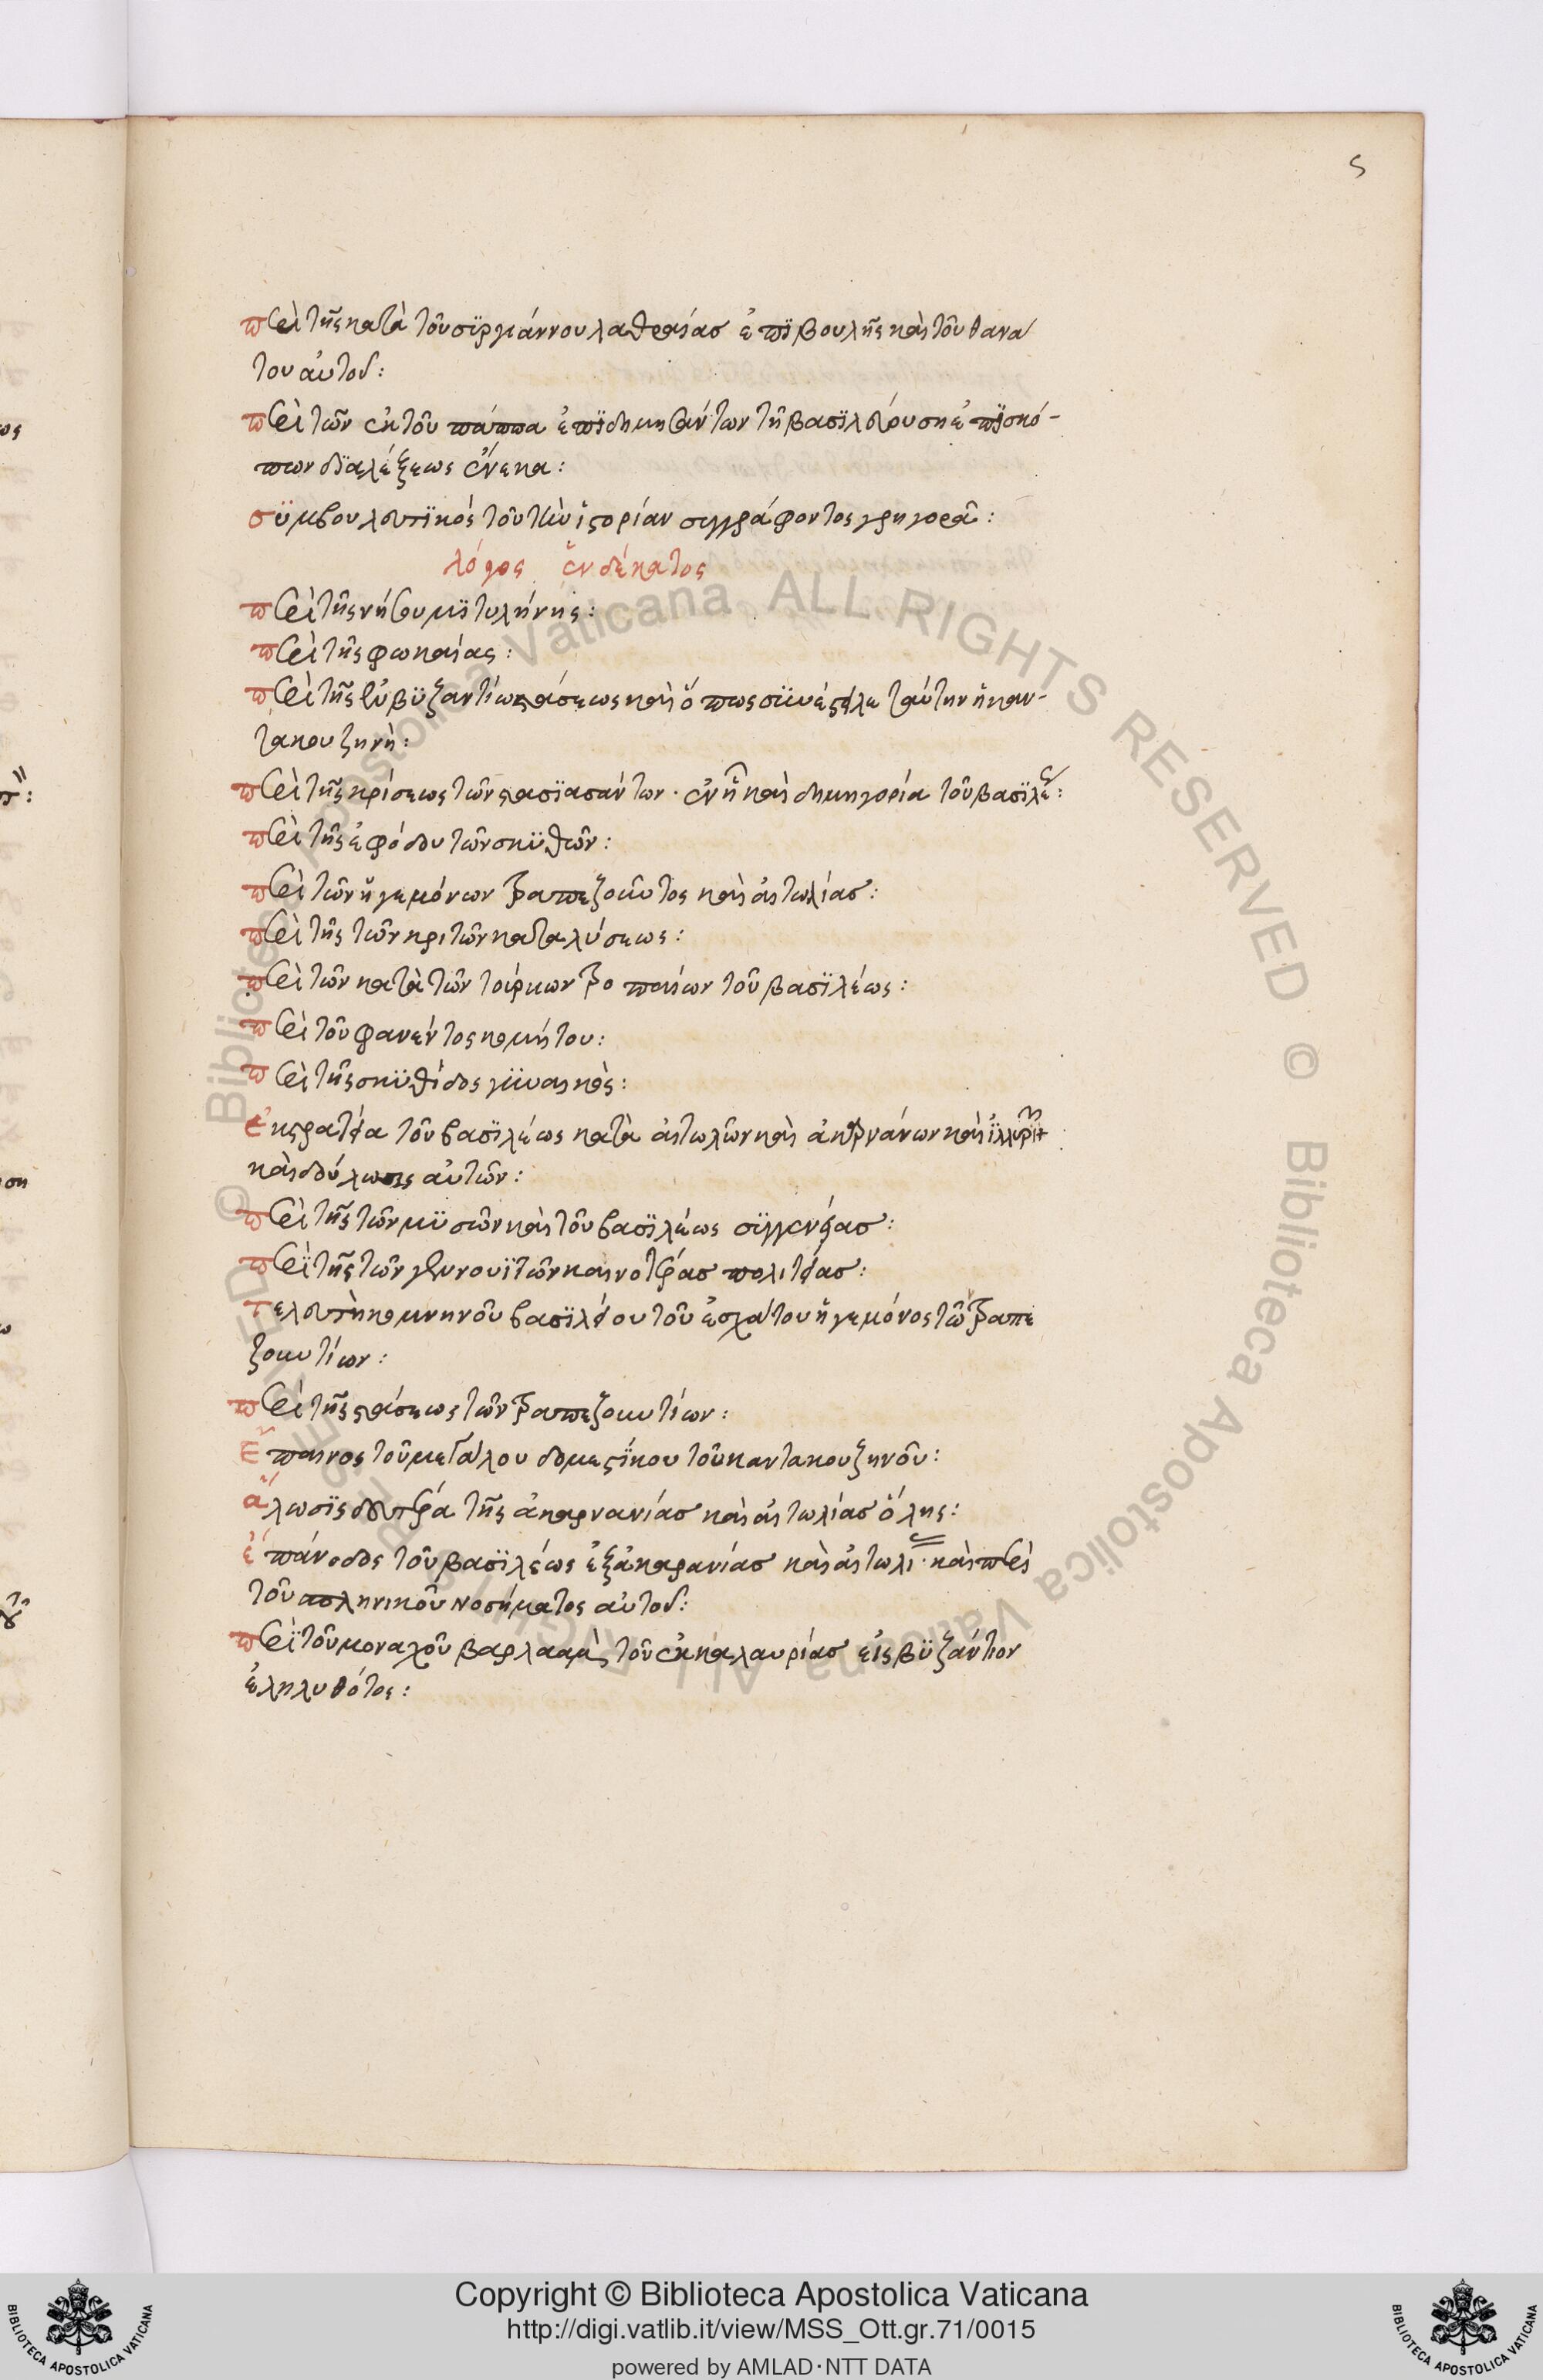 5
περὶ τῆς κατὰ τοῦ συργιάννου λαθραίας ἐπϊβουλῆς καὶ τοῦ θανά
του αὐτοῦ:
περὶ τῶν ἐκ τοῦ πάππα ἐπϊδημησάντων τῇ βασϊλευούση ἐπϊσκό-
πων διαλέξεως ἕνεκα:
σϋμβουλευτϊκὸς τοῦ τὴν ἱστορίαν συγγράφοντος γρηγορᾶ:
λόγος ἑνδέκατος
περὶ τῆς νήσου μϊτυλήνης:
περὶ τῆς φωκαίας:
περὶ τῆς ἐν βϋζαντίω στάσεως καὶ ὅπως συνέστειλε ταύτην ἡ καν-
τακουζηνή:
περὶ τῆς κρίσεως τῶν στασϊασάντων. ἐν ᾗ καὶ δημηγορία τοῦ βασϊλέως:
περὶ τῆς ἐφόδου τῶν σκϋθῶν:
περὶ τῶν ἡγεμόνων τραπεζοῦντος καὶ αἰτωλίας:
περὶ τῆς τῶν κριτῶν καταλύσεως:
περὶ τῶν κατὰ τῶν τούρκων τροπαίων τοῦ βασϊλέως:
περὶ τοῦ φανέντος κομήτου:
περὶ τῆς σκϋθίδος γϋναικὸς:
ἐκστρατεία τοῦ βασϊλέως κατὰ αἰτωλῶν καὶ ἀκαρνάνων καὶ ἰλλυριῶν
καὶ δούλωσις αὐτῶν:
περὶ τῆς τῶν μϋσῶν καὶ τοῦ βασϊλέως συγγενείας:
περὶ τῆς τῶν γενουϊτῶν καινοτέρας πολιτείας:
τελευτὴ κομνηνοῦ βασϊλείου τοῦ ἐσχάτου ἡγεμόνος τῶν τραπε
ζουντίων:
περὶ τῆς στάσεως τῶν τραπεζουντίων:
ἔπαινος τοῦ μεγάλου δομεστίκου τοῦ καντακουζηνοῦ:
ἅλωσϊς δευτέρα τῆς ἀκαρνανίας καὶ αἰτωλίας ὅλης:
ἐπάνοδος τοῦ βασϊλέως ἐξ ἀκαρανίας καὶ αἰτωλίας. καὶ περὶ
τοῦ σπληνικοῦ νοσήματος αὐτοῦ:
περὶ τοῦ μοναχοῦ βαρλαὰμ τοῦ ἐκ καλαυρίας εἰς βϋζάντιον
ἐληλυθότος:
Copyright © Biblioteca Apostolica Vaticana
http://digi.vatlib.it/view/MSS_Ott.gr.71/0015
powered by AMLAD·NTT DATA
BIBLIOTECA APOSTOLICA VATICANA
BIBLIOTECA APOSTOLICA VATICANA
© Biblioteca Apostolica Vaticana ALL RIGHTS RESERVED
© Biblioteca Apostolica Vaticana ALL RIGHTS RESERVED